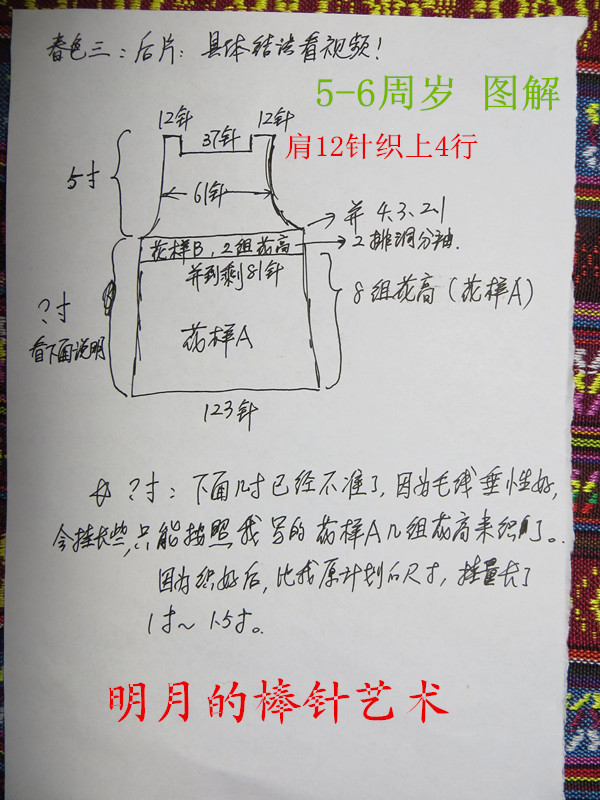 春色三：后片：具体结法看视频！
5-6周岁 图解
12针
37针
12针
肩12针织上4行
5寸
61针
并 4.3.2.1
2排洞分袖.
花样B，2组花高
并到剩81针
8组花高（花样A）
?寸
看下面说明
花样A
123针
?寸：下面几寸已经不准了，因为毛线垂性好，
会挂长些，只能按照我写的花样A几组花高来织了。
因为织好后，比我原计划的尺寸，挂量长了
1寸～1.5寸。
明月的棒针艺术